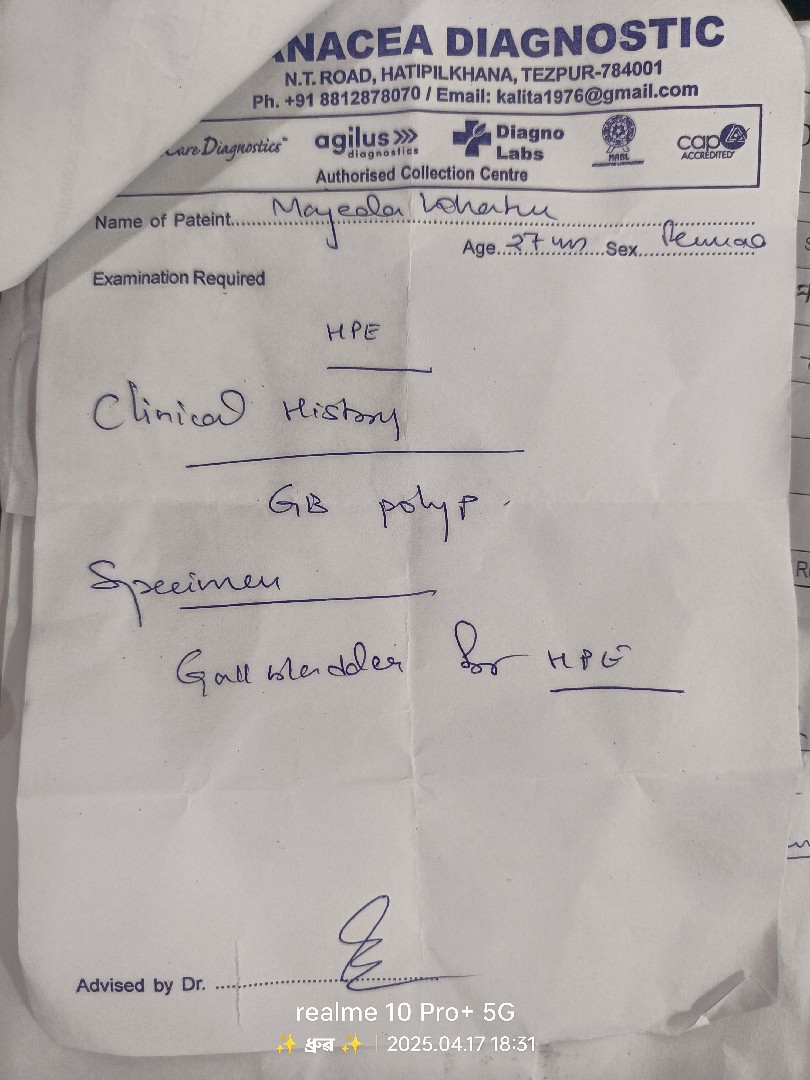 ANACEA DIAGNOSTIC
N.T. ROAD, HATIPILKHANA, TEZPUR-784001
Ph. +91 8812878070 / Email: kalita1976@gmail.com
Care Diagnostics™ agilus diagnostics Diagno Labs NABL cap ACCREDITED
Authorised Collection Centre
Name of Pateint..... 
Age. 27 yrs Sex. Female
Examination Required
HPE
Clinical History
GB polyp.
Specimen
Gall bladder for HPE
Advised by Dr. .....
realme 10 Pro+ 5G
✨ ধ্রুব ✨ | 2025.04.17 18:31